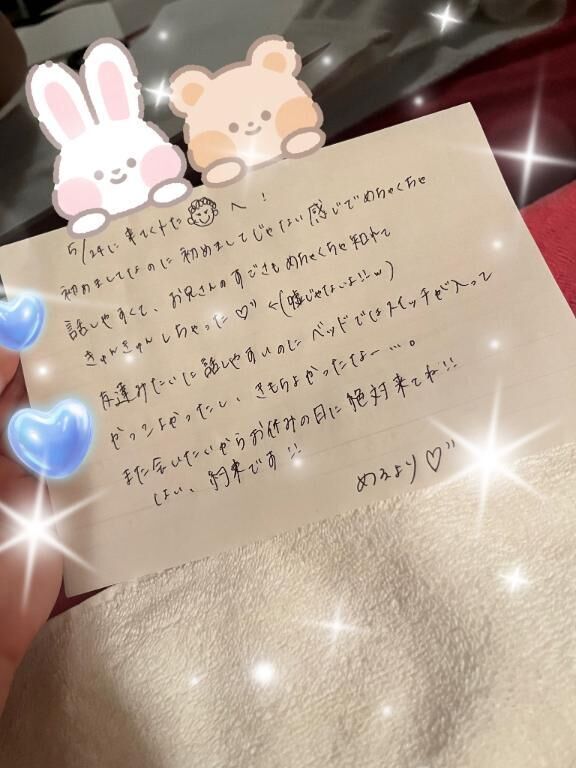 5/24に来てくれた へ!
初めましてなのに初めましてじゃない感じでめちゃくちゃ
話しやすくて、お兄さんのすごさもめちゃくちゃ知れて
きゅんきゅんしちゃった♡" ←(嘘じゃないよ!!w)
友達みたいに話しやすいのにベッドではスイッチが入って
かっこよかったし、きもちよかったなよー…。
また会いたいからお休みの日に絶対来てね!!
はい、約束です!!
めるより♡"